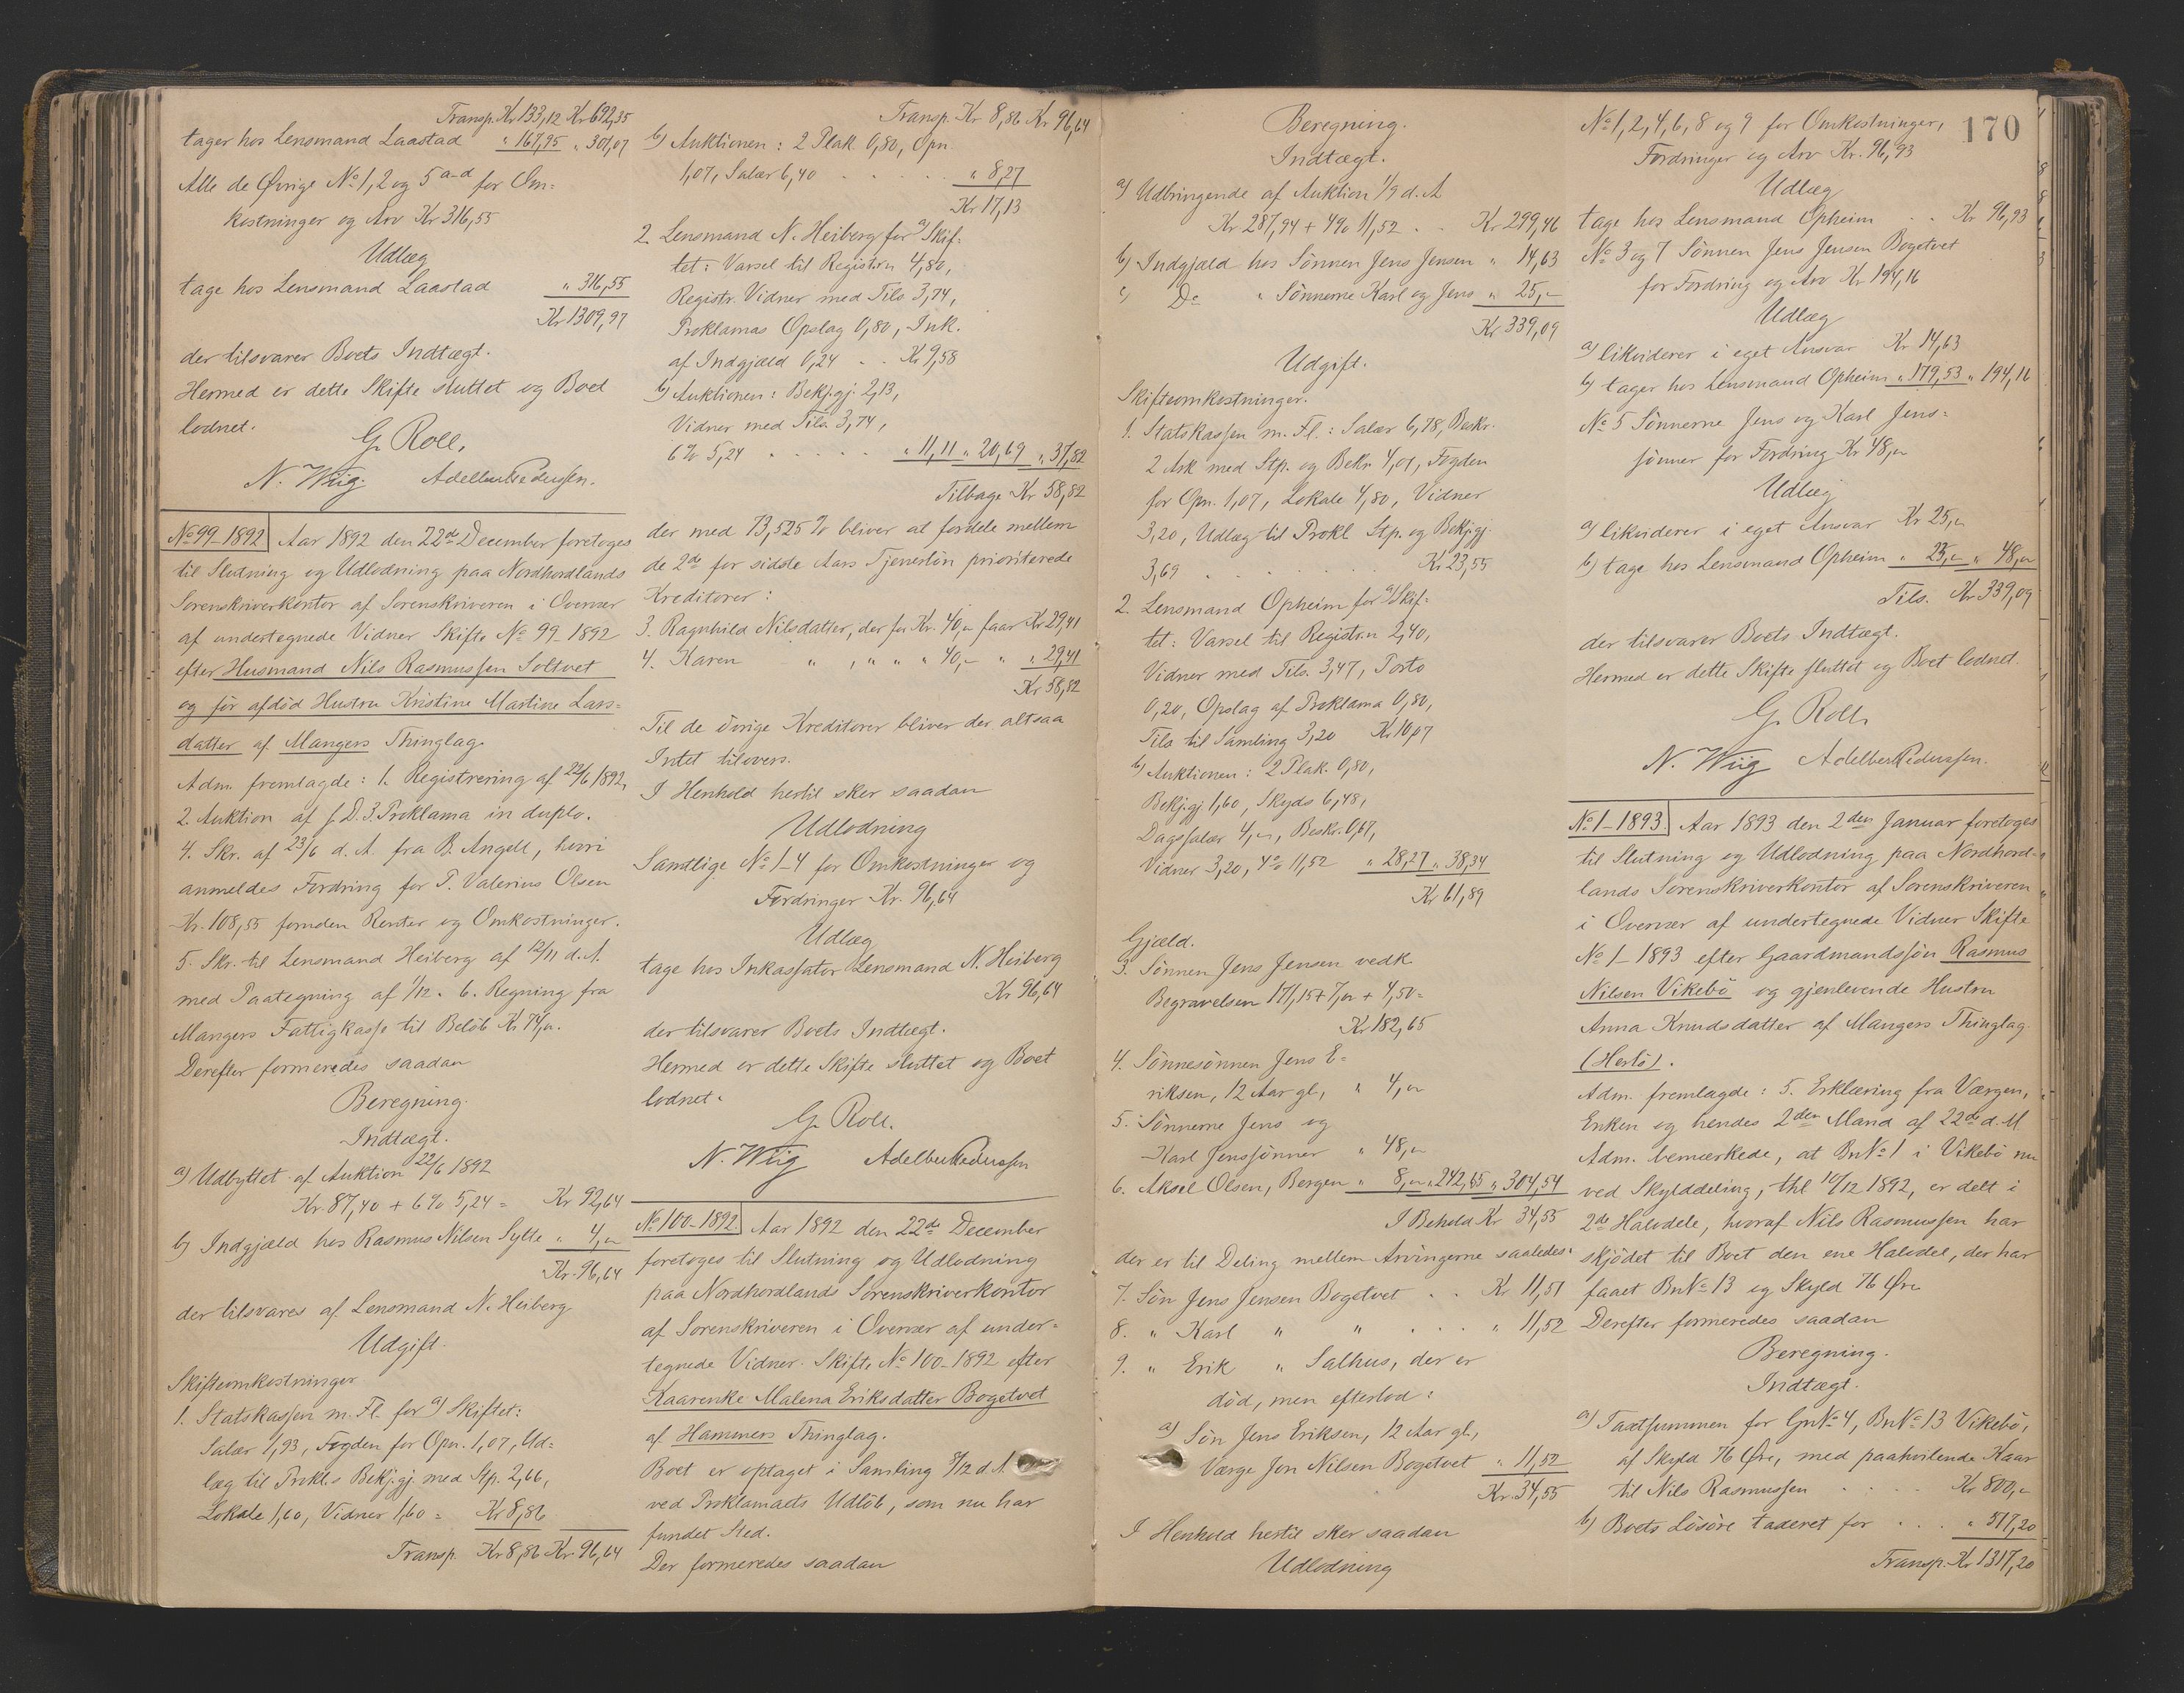 Transp. Kr 133,12 Kr 692,35
tager hos Lensmand Laastad " 167,95 " 301,07
Alle de Øvrige No 1, 2 og 5 a-d for Om=
kostninger og Arv Kr 316,55
Udlæg
tage hos Lensmand Laastad " 316,55
Kr 1309,97
der tilsvarer Boets Indtægt.
Hermed er dette Skifte sluttet og Boet
lodnet.
G. Roll.
N. Wiig. Adelbert Pedersen.
No 99-1892 Aar 1892 den 22de December foretoges
til Slutning og Udlodning paa Nordhordlands
Sorenskriverkontor af Sorenskriveren i Overvær
af undertegnede Vidner Skifte No 99 1892
efter Husmand Nils Rasmussen Soltvet
og før afdød Hustru Kristine Martine Lars=
datter af Mangers Thinglag.
Adm. fremlagde: 1. Registrering af 22/6 1892,
2. Auktion af s. D. 3. Proklama in duplo.
4. Skr. af 23/6 d. A. fra B. Angell, hvori
anmeldes Fordring for P. Valerius Olsen
Kr. 108,55 foruden Renter og Omkostninger.
5. Skr. til Lensmand Heiberg af 12/11 d. A.
med Paategning af 1/12. 6. Regning fra
Mangers Fattigkasse til Beløb Kr 74,-.
Derefter formeredes saadan
Beregning.
Indtægt.
a) Udbyttet af Auktion 22/6 1892
Kr. 87,40 + 6% 5,24 = Kr 92,64
b) Indgjæld hos Rasmus Nilsen Sylte " 4,-
Kr. 96,64
der tilsvares af Lensmand N. Heiberg
Udgift.
Skifteomkostninger
1. Statskassen m. Fl. for a) Skiftet:
Salær 1,93, Fogden for Opn. 1,07, Ud=
læg til Prokl.s Bekj.gj. med Stp. 2,66,
Lokale 1,60, Vidner 1,60 = Kr 8,86
Transp. Kr 8,86 Kr. 96,64
Transp. Kr 8,86 Kr 96,64
b) Auktionen: 2 Plak. 0,80, Opn.
1,07, Salær 6,40 " 8,27
Kr 17,13
2 Lensmand N. Heiberg for a) Skif=
tet: Varsel til Registr.n 4,80,
Registr. Vidner med Tils 3,74,
Proklamas Opslag 0,80, Ink.
af Indgjæld 0,24 Kr 9,58
b) Auktionen: Bekj.gj. 2,13,
Vidner med Tils 3,74,
6% 5,24 " 11,11 " 20,69 " 37,82
Tilbage Kr 58,82
der med 73,525% bliver at fordele mellem
de 2de for sidste Aars Tjenesløn prioriterede
Kreditorer:
3. Ragnhild Nilsdatter, der for Kr. 40,- faar Kr 29,41
4. Karen " , " " " 40,- " " 29,41
Kr 58,82
Til de øvrige Kreditorer bliver der altsaa
Intet tilovers.
I Henhold hertil sker saadan
Udlodning
Samtlige No 1-4 for Omkostninger og
Fordringer Kr. 96,64
Udlæg
tage hos Inkassator Lensmand N. Heiberg
Kr 96,64
der tilsvarer Boets Indtægt.
Hermed er dette Skifte sluttet og Boet
lodnet.
G. Roll.
N. Wiig Adelbert Pedersen
No 100-1892 Aar 1892 den 22de December
foretoges til Slutning og Udlodning
paa Nordhordlands Sorenskriverkontor
af Sorenskriveren i Overvær af under=
tegnede Vidner. Skifte No 100-1892 efter
Kaarenke Malena Eriksdatter Bogetvet
af Hammers Thinglag.
Boet er optaget i Samling 3/12 d. A.
ved Proklamaets Udløb, som nu har
fundet Sted.
Der formeredes saadan
Beregning.
Indtægt.
a) Udbringende af Auktion 1/9 d. A
Kr 287,94 + 4% 11,52 Kr 299,46
b) Indgjæld hos Sønnen Jens Jensen " 14,63
c) Do " Sønnerne Karl og Jens " 25,-
Kr 339,09
Udgift.
Skifteomkostninger.
1. Statskassen m. Fl.: Salær 6,78, Beskr.
2 Ark med Stp. og Bekr. 4,01, Fogden
for Opn. 1,07, Lokale 4,80, Vidner
3,20, Udlæg til Prokl Stp. og Bekj.gj.
3,69 Kr 23,55
2. Lensmand Opheim for a) Skif=
tet: Varsel til Registr.n 2,40,
Vidner med Tils. 3,47, Porto
0,20, Opslag af Proklama 0,80,
Tils til Samling 3,20 Kr 10,07
b) Auktionen: 2 Plak. 0,80,
Bekj.gj 1,60, Skyds 6,48,
Dagssalær 4,-, Beskr. 0,67,
Vidner 3,20, 4% 11,52 " 28,27 " 38,34
Kr 61,89
Gjæld.
3. Sønnen Jens Jensen vedk.
Begravelsen 171,15 + 7,- + 4,50 =
Kr 182,65
4. Sønnesønnen Jens E=
riksen, 12 Aar gl., " 4,-
5. Sønnerne Jens og
Karl Jenssønner " 48,-
6. Aksel Olsen, Bergen " 8,- " 242,65 " 304,54
I Behold Kr 34,55
der er til Deling mellem Arvingerne saaledes:
7. Søn Jens Jensen Bogetvet Kr 11,51
8. " Karl " " " 11,52
9. " Erik " Salhus, der er
død, men efterlod:
a) Søn Jens Eriksen, 12 Aar gl.,
Værge Jon Nilsen Bogetvet " 11,52
Kr. 34,55
I Henhold hertil sker saadan
Udlodning
170
No 1, 2, 4, 6, 8 og 9 for Omkostninger,
Fordringer og Arv Kr. 96,93
Udlæg
tage hos Lensmand Opheim Kr 96,93
No 3 og 7 Sønnen Jens Jensen Bogetvet
for Fordring og Arv Kr 194,16
Udlæg
a) likviderer i eget Ansvar Kr 14,63
b) tager hos Lensmand Opheim " 179,53 " 194,16
No 5 Sønnerne Jens og Karl Jens=
sønner for Fordring Kr 48,-
Udlæg
a) likviderer i eget Ansvar Kr 25,-
b) tage hos Lensmand Opheim " 23,- " 48,-
Tils. Kr 339,09
der tilsvarer Boets Indtægt.
Hermed er dette Skifte sluttet og Boet lodnet.
G. Roll.
N. Wiig Adelbert Pedersen.
No 1-1893. Aar 1893 den 2den Januar foretoges
til Slutning og Udlodning paa Nordhord-
lands Sorenskriverkontor af Sorenskriveren
i Overvær af undertegnede Vidner Skifte
No 1-1893 efter Gaardmandssøn Rasmus
Nilsen Vikebø og gjenlevende Hustru
Anna Knudsdatter af Mangers Thinglag.
(Herlø).
Adm. fremlagde: 5. Erklæring fra Værgen,
Enken og hendes 2den Mand af 22de d. M
Adm. bemærkede, at BnNo 1 i Vikebø nu
ved Skylddeling, thl. 10/12 1892, er delt i
2de Halvdele, hvoraf Nils Rasmussen har
skjødet til Boet den ene Halvdel, der har
faaet BnNo 13 og Skyld 76 Øre
Derefter formeredes saadan
Beregning.
Indtægt.
a) Taxtsummen for GnNo 4, BnNo 13 Vikebø,
af Skyld 76 Øre, med paahvilende Kaar
til Nils Rasmussen Kr 800,-
b) Boets Løsøre taxeret for " 517,20
Transp. Kr 1317,20